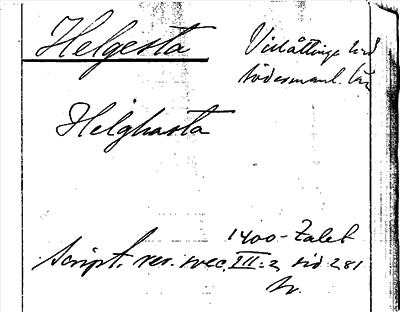 Helgesta
Villåttinge hrd
Södermanl. län
Helghasta
1400-talet
Script. rer. svec. III:2, sid 281